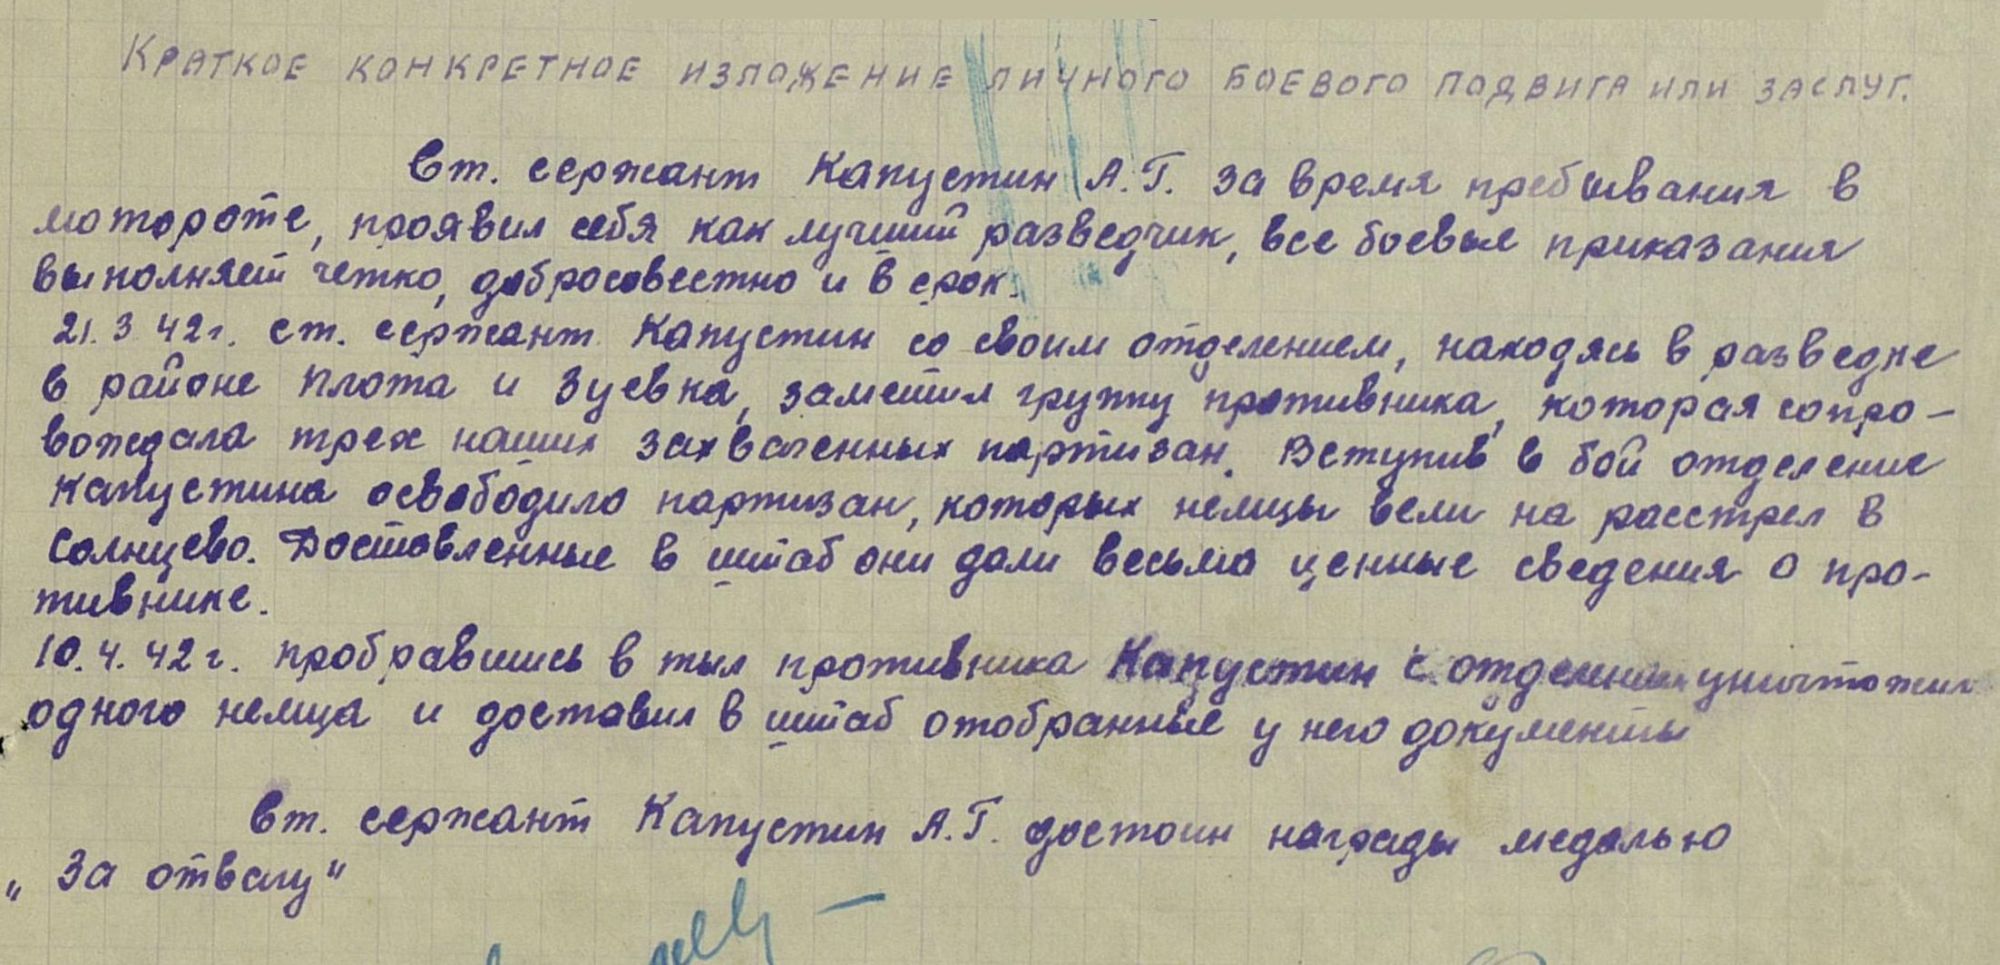 Краткое конкретное изложение личного боевого подвига или заслуг.
Ст. сержант Капустин А.Г. за время пребывания в
мотороте, проявил себя как лучший разведчик, все боевые приказания
выполняет четко, добросовестно и в срок.
21.3 42г. ст. сержант Капустин со своим отделением, находясь в разведке
в районе Плота и Зуевка, заметил группу противника, которая сопро-
вождала трех наших захваченных партизан. Вступив в бой отделение
Капустина освободило партизан, которых немцы вели на расстрел в
Солнцево. Доставленные в штаб они дали весьма ценные сведения о про-
тивнике.
10.4.42г. пробравшись в тыл противника Капустин с отделением уничтожил
одного немца и доставил в штаб отобранные у него документы
Ст. сержант Капустин А.Г. достоин награды медалью
„За отвагу"